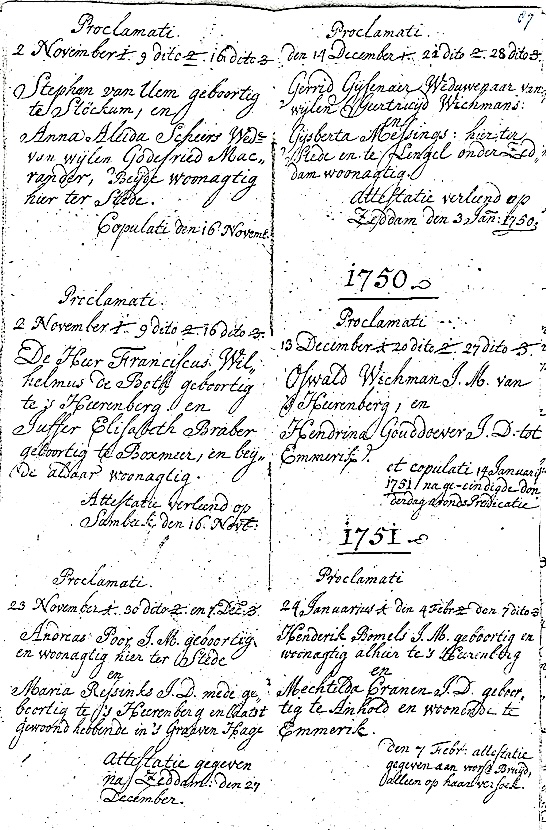 87
Proclamati.
2 November 1. 9 dito 2. 16 dito 3
Stephen van Uem geboortig
te Stockum, en
Anna Aleida Scheers Wedᵉ
van wijlen Godefried Mac-
rander, Beijde woonagtig
hier ter Stede.
Copulati den 16 Novemb.
Proclamati.
2 November 1. 9 dito 2. 16 dito 3.
De Heer Franciscus Wil-
helmus de Both geboortig
te 's Heerenberg en
Juffer Elisabeth Braber
geboortig te Boxmeer, en bey-
de aldaar woonagtig.
Attestatie verleend op
Sambeek den 16 Novt:
Proclamati.
23 November 1. 30 dito 2. en 7. Dec. 3.
Andreas Poor J. M. geboortig
en woonagtig hier ter Stede
en
Maria Reysinks J. D. mede ge-
boortig te 's Heerenberg en laatst
gewoond hebbende in 's Graaven Hage
Attestatie gegeven
na Zeddam: den 27
December.
Proclamati.
den 14 December 1. 21 dito 2. 28 dito 3
Gerrid Gijsenaer Weduwenaar van
wijlen Geertruijd Wichmans:
en
Gijsberta Messings: hier ter
Stede en te Lengel onder Zed-
dam woonagtig.
Attestatie verleend op
Zeddam den 3 Jan: 1750.
1750
Proclamati
13 December 1 20 dito 2. 27 dito 3.
Oswald Wichman J. M. van
's Heerenberg, en
Hendrina Gouddoever J. D. tot
Emmerik.
et copulati 14 Januarij
1751 / na ge-eindigde don-
derdag avonds Predicatie
1751
Proclamati
24 Januarius 1 den 4 Febr 2 den 7 dito 3
Henderik Bomels J. M. geboortig en
woonagtig alhier te 's Heerenberg
en
Mechtilda Cranen J. D. geboor-
tig te Anhold en woonende te
Emmerik.
den 7 Febr: attestatie
gegeven aan voors: Bruijd,
alleen op haar versoek.